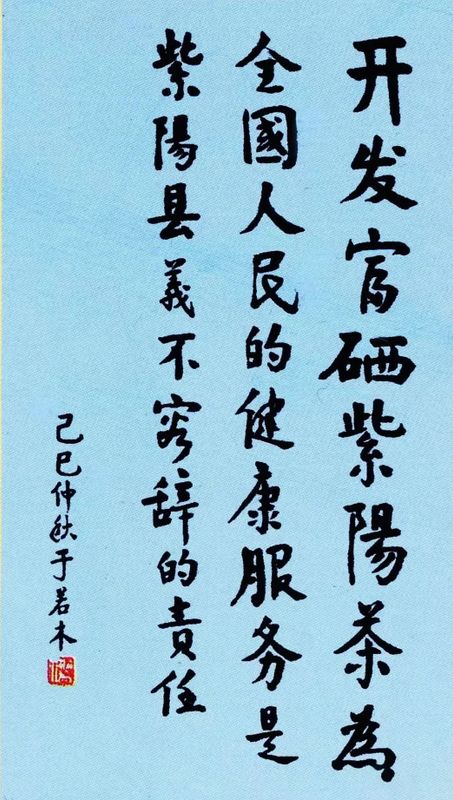 开发富硒紫陽茶為
全國人民的健康服务是
紫陽县義不容辞的責任
己巳仲秋于若木